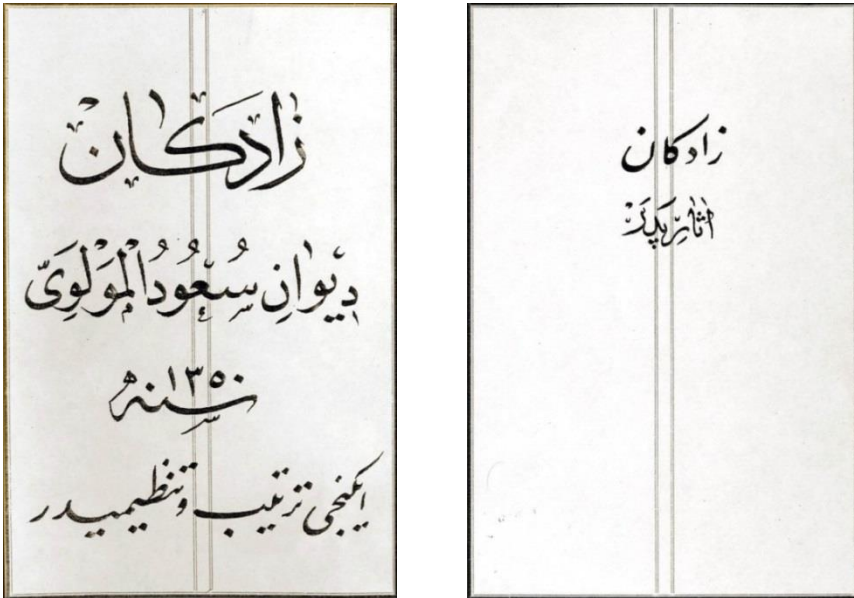 زادكان
ديوانِ سُعُودُ المَوْلَوِىّ
سنه ١٣٥٠
ايكنجى ترتيب و تنظيميدر
زادكان
اٰثارِ پدر